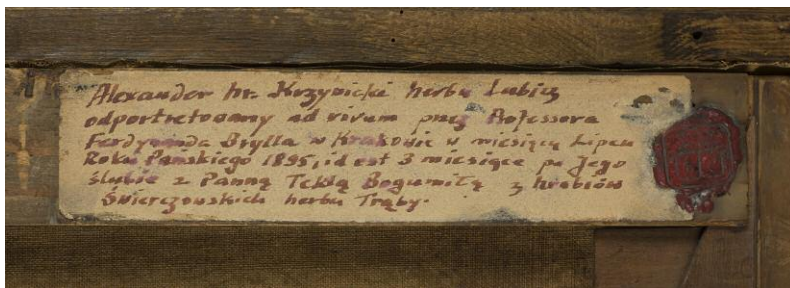 Alexander hr. Krzynicki herbu Lubicz
odportretowany ad vivum przez Professora
Ferdynanda Brylla w Krakowie w miesiącu Lipcu
Roku Pańskiego 1895, id est 3 miesiące po Jego
ślubie z Panną Teklą Bogumiłą z hrabiów
Świerczewskich herbu Trąby.